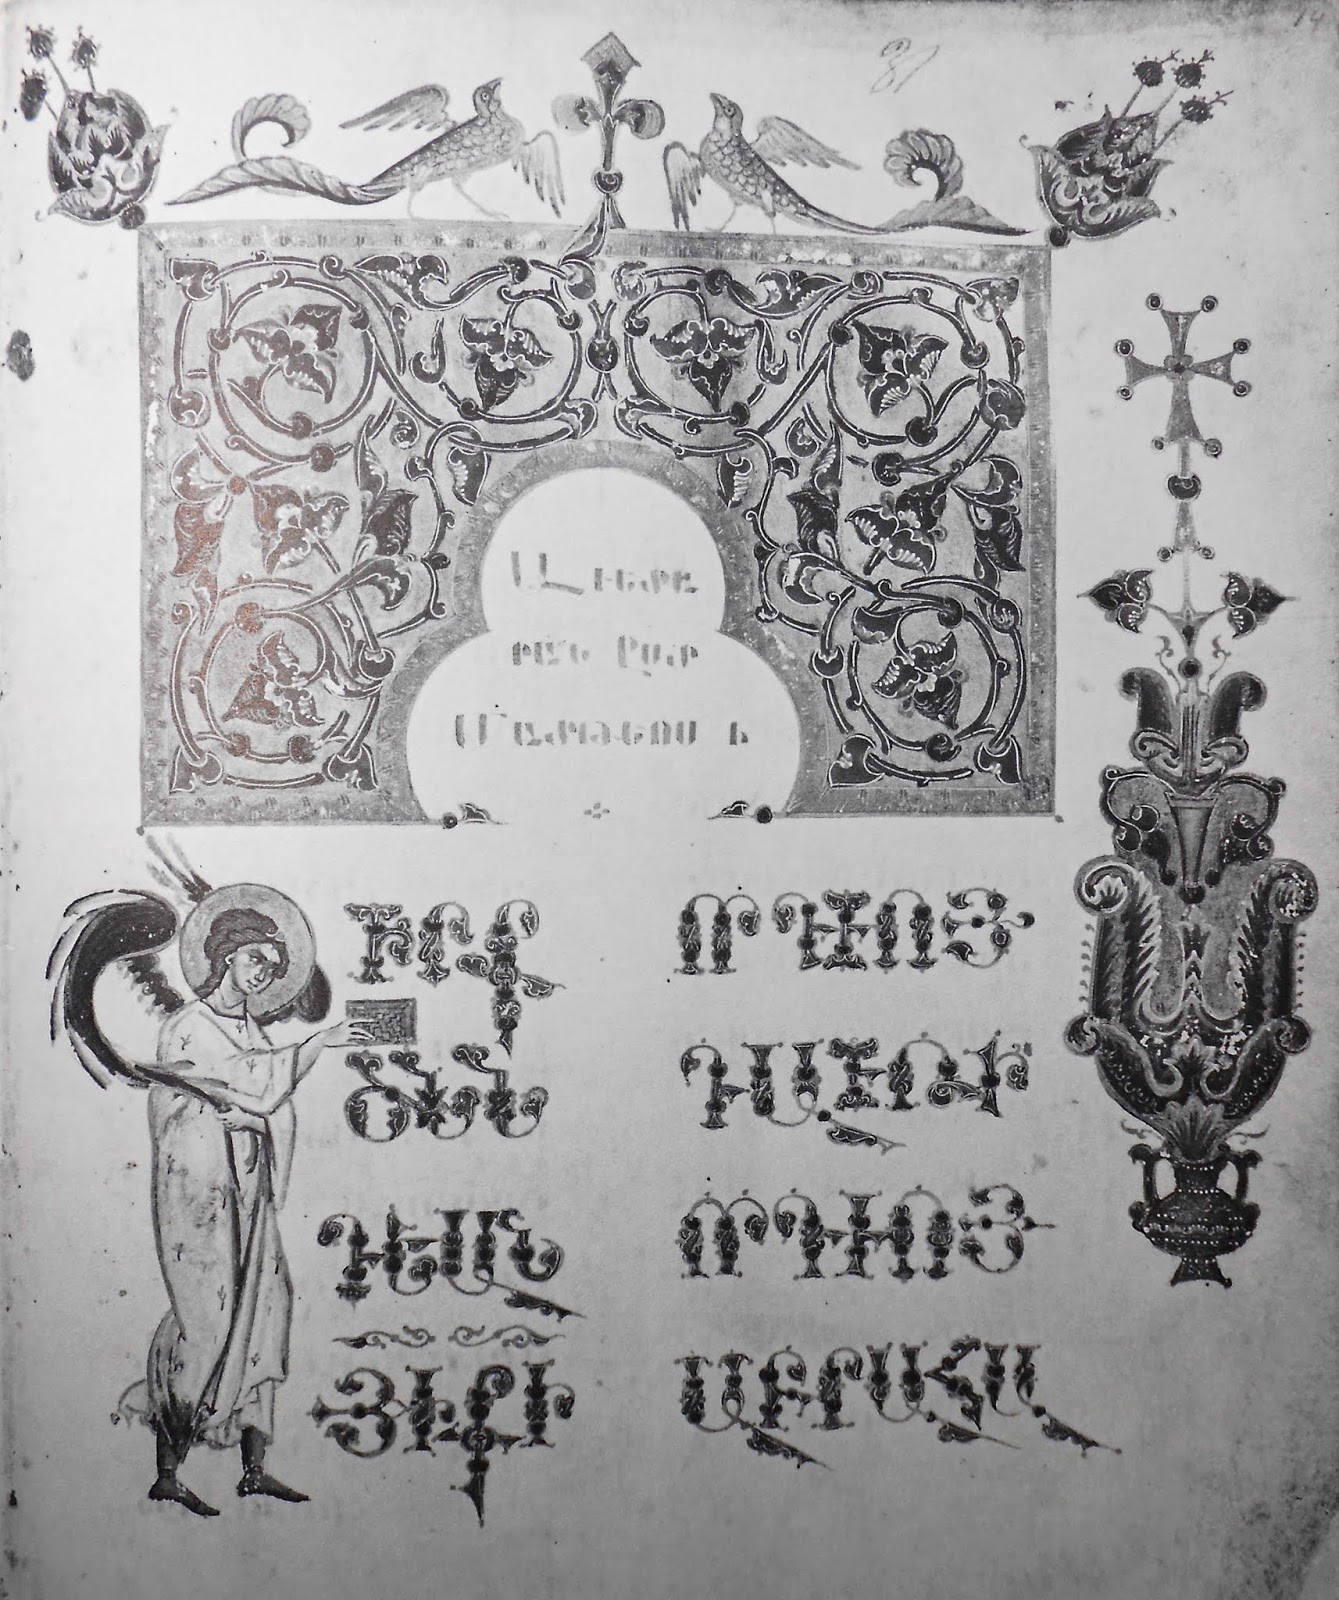 Աւետա
րան ըստ
Մատթեոսի
ԻՐՔ
ԾՆՆ
ԴԵԱՆ
ՅԻ ՔԻ
ՈՐԴՒՈՅ
ԴԱՒԹԻ
ՈՐԴՒՈՅ
ԱԲՐԱՀԱ